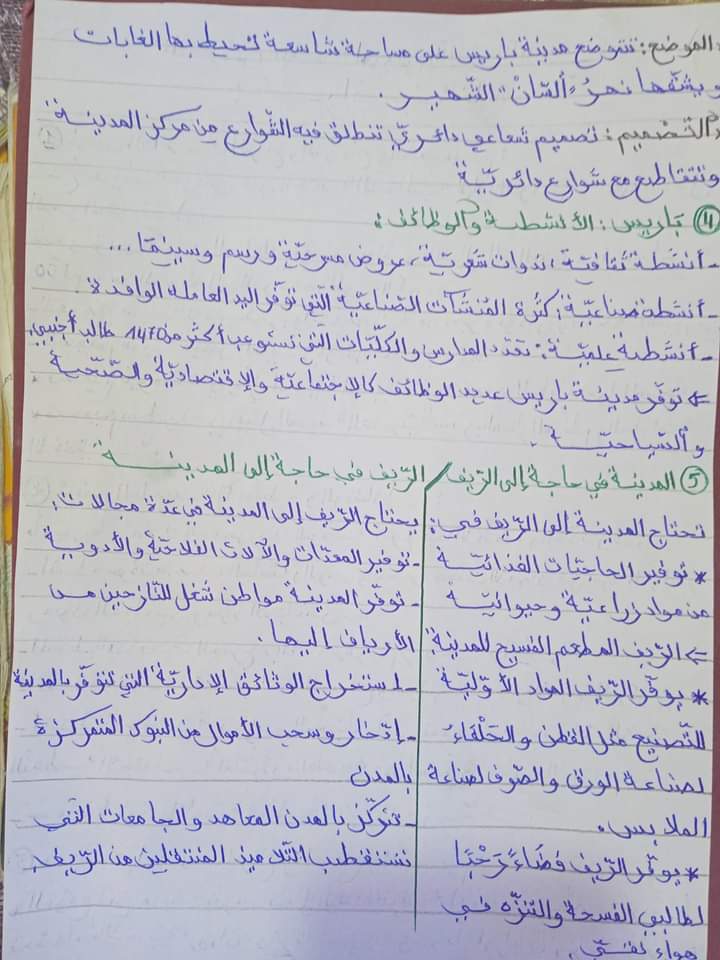 الموضع: تتموضع مدينة باريس على مساحة شاسعة تحيط بها الغابات
ويشقّها نهرُ "السّانْ" الشّهير.
التّصميم: تصميم شعاعي دائريّ تنطلق فيه الشّوارع من مركز المدينة
وتتقاطع مع شوارع دائريّة
④ باريس: الأنشطة والوظائف:
- أنشطة ثقافيّة: ندوات شعريّة، عروض مسرحيّة ورسم وسينما...
- أنشطة صناعيّة: كثرة المنشآت الصّناعيّة الّتي توفّر اليد العاملة الوافدة.
- أنشطة علميّة: تعدّد المدارس والكلّيّات الّتي تستوعب أكثر من 1470 طالب أجنبي.
⇐ توفّر مدينة باريس عديد الوظائف كالإجتماعيّة والإقتصاديّة والصّحّية
والسّياحيّة.
⑤ المدينة في حاجة إلى الرّيف / الرّيف في حاجة إلى المدينة
تحتاج المدينة إلى الرّيف في:
* توفير الحاجيّات الغذائيّة
من مواد زراعيّة وحيوانيّة
⇐ الرّيف المطعم الفسيح للمدينة
* يوفّر الرّيف المواد الأوّليّة
للتّصنيع مثل القطن والحَلْفَاءَ
لصناعة الورق والصّوف لصناعة
الملابس.
* يوفّر الرّيف فضاءً رَحْبًا
لطالبي الفسحة والتنزّه في
هواء نقيّ.
يحتاج الرّيف إلى المدينة في عدّة مجالات:
- توفير المعدّات والآلات الفلاحيّة والأدوية
- توفّر المدينة مواطن شغل للنّازحين من
الأرياف إليها.
- استخراج الوثائق الإداريّة التي تتوفّر بالمدينة
- إدّخار وسحب الأموال من البنوك المتمركزة
بالمدن
- تتركّز بالمدن المعاهد والجامعات الّتي
تستقطب التّلاميذ المنتقلين من الرّيف